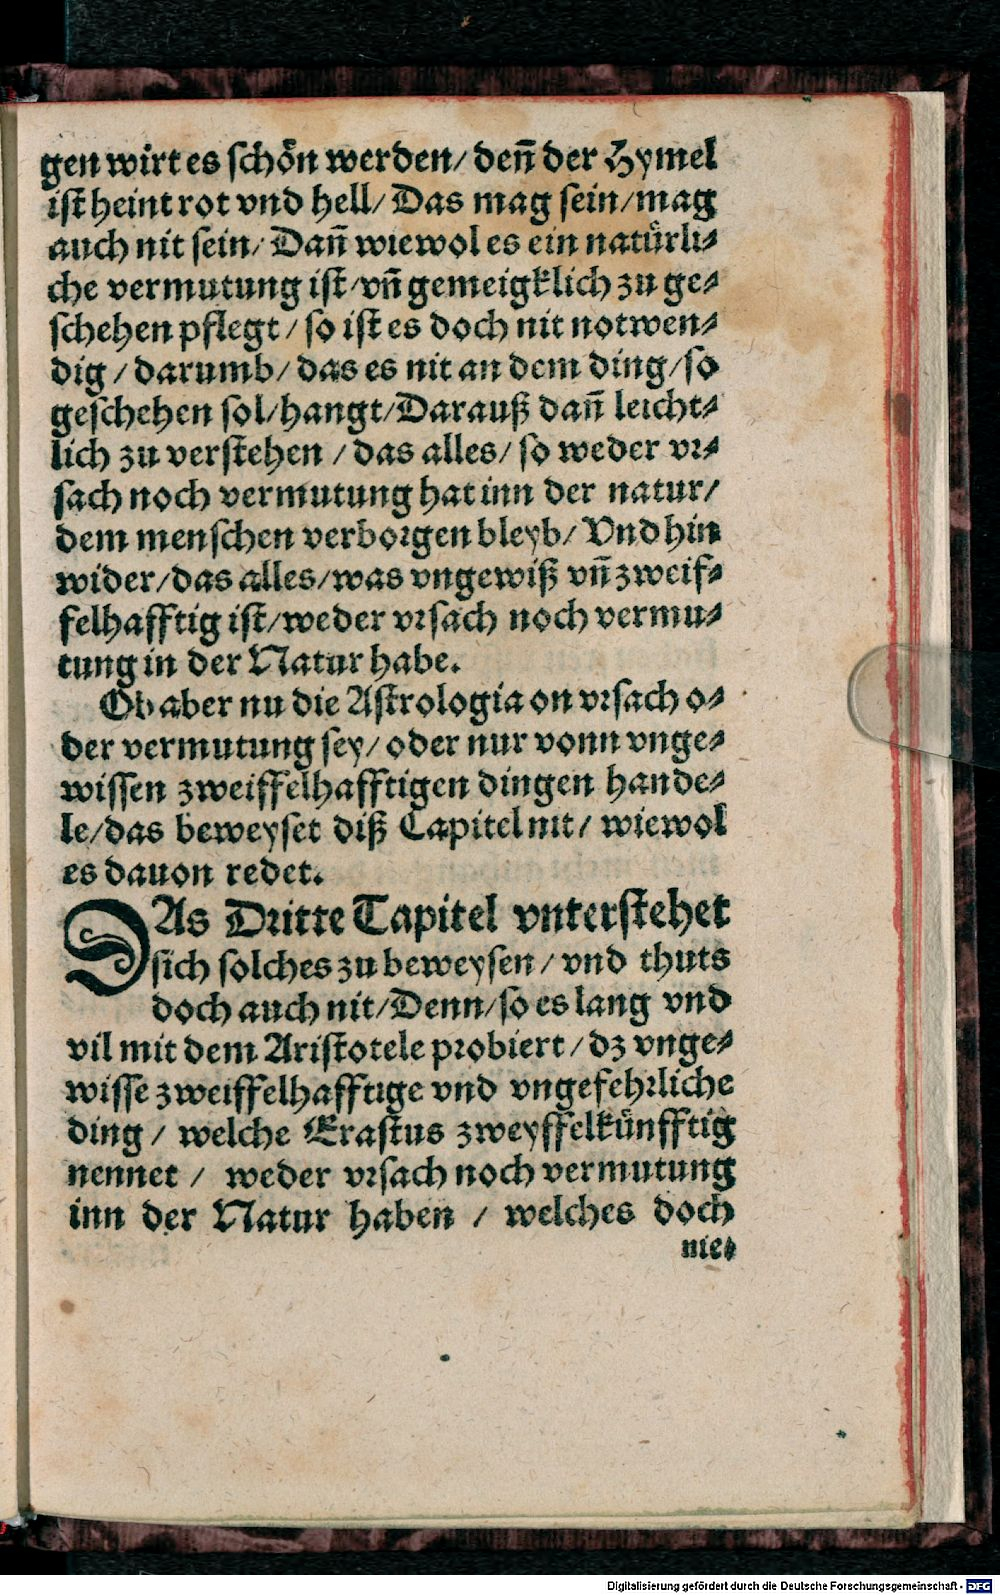 gen wirt es schoͤn werden/ deñ der Hymel
ist heint rot vnd hell/ Das mag sein/mag
auch nit sein/ Dañ wiewol es ein natuͤrli⸗
che vermutung ist/vñ gemeigklich zu ge⸗
schehen pflegt/ so ist es doch nit notwen⸗
dig/ darumb/ das es nit an dem ding/so
geschehen sol/hangt/Darauß dañ leicht⸗
lich zu verstehen / das alles/ so weder vr⸗
sach noch vermutung hat inn der natur/
dem menschen verborgen bleyb/ Vnd hin
wider/das alles/was vngewiß vñ zweif⸗
felhafftig ist/weder vrsach noch vermu⸗
tung in der Natur habe.
Ob aber nu die Astrologia on vrsach o⸗
der vermutung sey/ oder nur vonn vnge⸗
wissen zweiffelhafftigen dingen hande⸗
le/das beweyset diß Capitel nit/ wiewol
es dauon redet.
DAs Dritte Capitel vnterstehet
sich solches zu beweysen/ vnd thuts
doch auch nit/Denn/so es lang vnd
vil mit dem Aristotele probiert/ dz vnge⸗
wisse zweiffelhafftige vnd vngefehrliche
ding/ welche Erastus zweyffelkuͤnfftig
nennet / weder vrsach noch vermutung
inn der Natur haben / welches doch
nie⸗
Digitalisierung gefördert durch die Deutsche Forschungsgemeinschaft - DFG